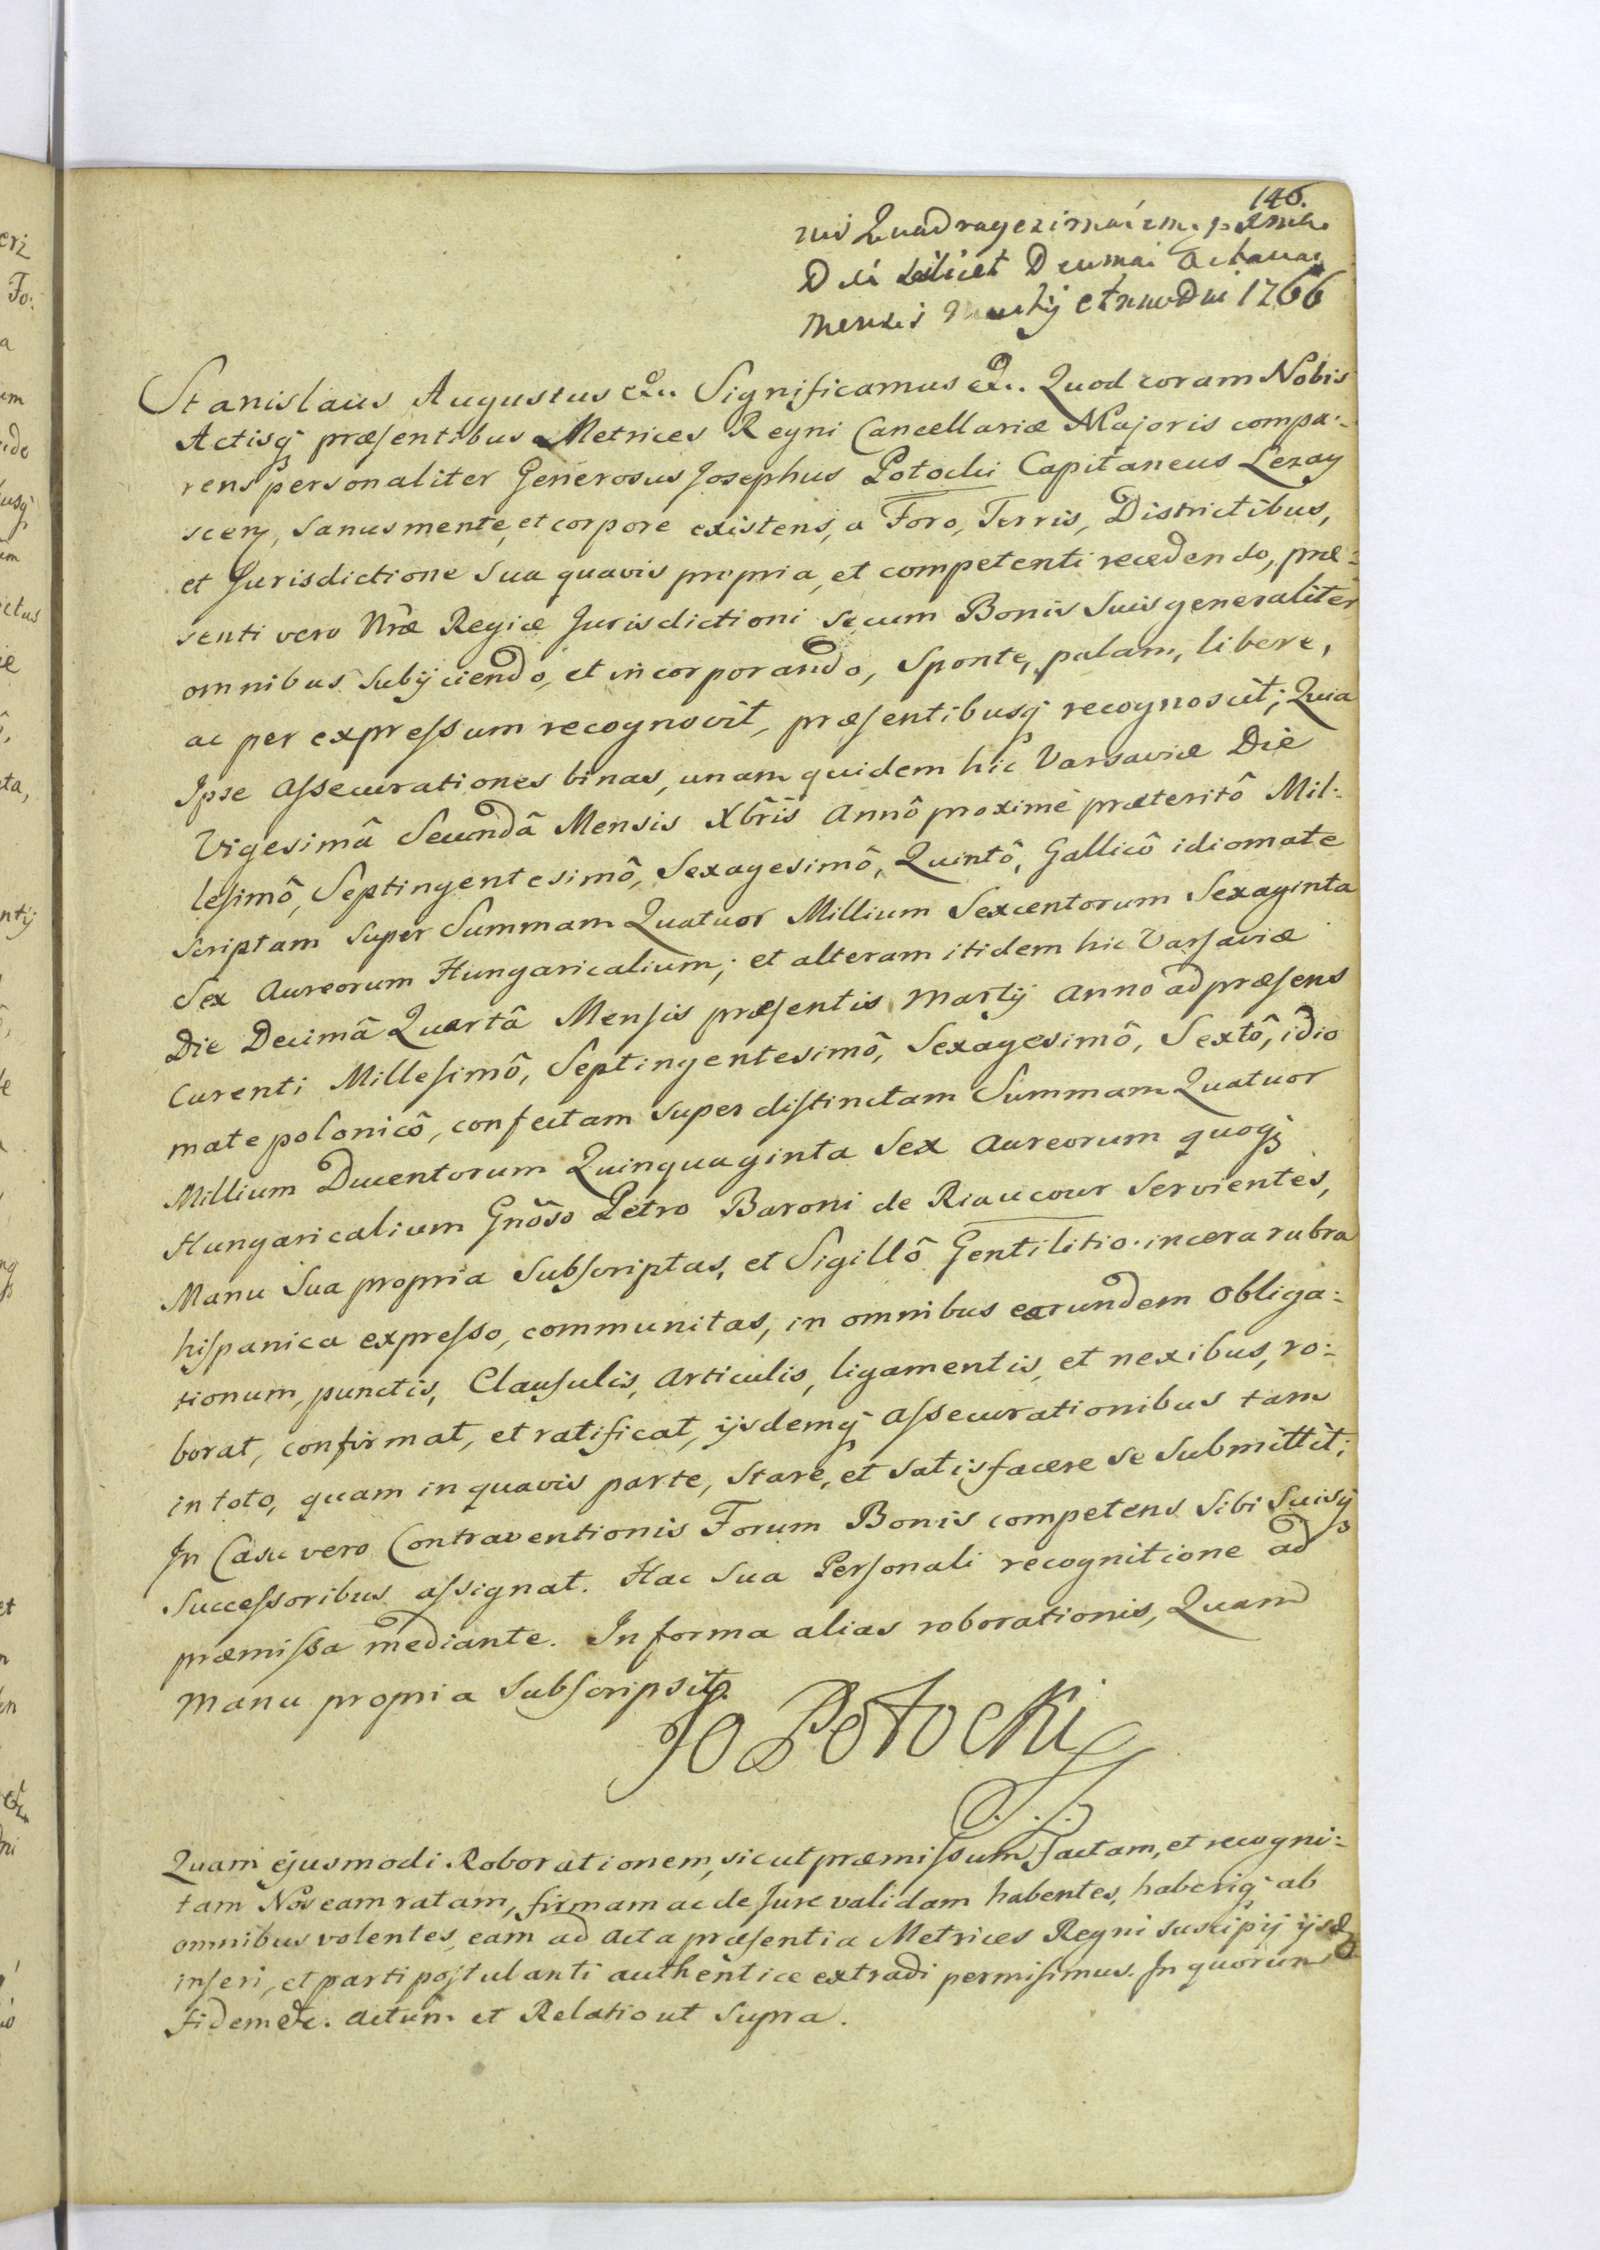 146.
nis Quadragezimai
Die scilicet Decimai Octavai
Mensis Martij Anno Dni 1766
Stanislaus Augustus &c. Significamus &c. Quod coram Nobis
Actisq præsentibus Metrices Regni Cancellariæ Majoris compa:
rens personaliter Generosus Josephus Potocki Capitaneus Lezay
scen, sanus mente, et corpore existens, a Foro, Terris, Districtibus,
et Jurisdictione sua quavis propria, et competenti recedendo, præ:
senti vero Nræ Regiæ Jurisdictioni secum Bonis suis generaliter
omnibus subijciendo, et incorporando, Sponte, palam, libere,
ac per expressum recognovit, præsentibusq recognoscit; Quia
Ipse Assecurationes binas, unam quidem hic Varsaviæ Die
Vigesimâ Secundâ Mensis Xbris Annô proximè præteritô Mil:
lesimô, Septingentesimô, Sexagesimô, Quintô, Gallicô idiomate
scriptam super Summam Quatuor Millium Sexcentorum Sexaginta
Sex Aureorum Hungaricalium; et alteram itidem hic Varsaviæ
Die Decimâ Quartâ Mensis præsentis Martij Anno ad præsens
Curenti Millesimô, Septingentesimô, Sexagesimô, Sextô, idio
mate polonicô, confectam super distinctam Summam Quatuor
Millium Ducentorum Quinquaginta Sex Aureorum quoq
Hungaricalium Gnôso Petro Baroni de Riaucour servientes,
Manu sua propria subscriptas, et Sigillô Gentilitio in cera rubra
hispanica expresso, communitas, in omnibus earundem Obliga:
tionum, punctis, Clausulis, Articulis, ligamentis, et nexibus, ro:
borat, confirmat, et ratificat, ijsdemq Assecurationibus tam
in toto, quam in quavis parte, stare, et satisfacere se submittit;
In Casu vero Contraventionis Forum Bonis competens sibi suisq
Successoribus assignat. Hac sua Personali recognitione ad
præmissa mediante. In forma alias roborationis, Quam
manu propria subscripsit.
Jo Potocki
Quam ejusmodi Roborationem, sicut præmissum factam, et recogni:
tam Nos eam ratam, firmam ac de Jure validam habentes, haberiq ab
omnibus volentes, eam ad Acta præsentia Metrices Regni suscipij ijsd
inseri, et parti postulanti authentice extradi permisimus. In quorum
fidem &c. Actum et Relatio ut supra.